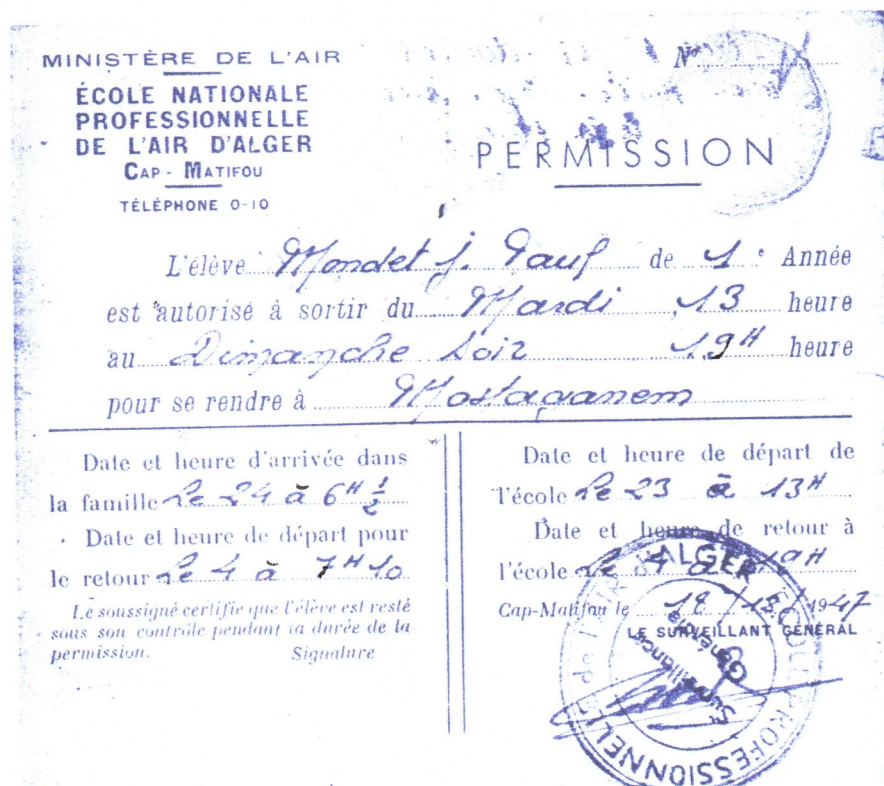 MINISTÈRE DE L'AIR
ÉCOLE NATIONALE
PROFESSIONNELLE
DE L'AIR D'ALGER
CAP - MATIFOU
TÉLÉPHONE 0-10
No
PERMISSION
L'élève Mondet J. Paul de 1e Année
est autorisé à sortir du Mardi 13 heure
au Dimanche soir 19H heure
pour se rendre à Mostaganem
Date et heure d'arrivée dans
la famille le 24 à 6H ½
Date et heure de départ pour
le retour le 4 à 7H10
Le soussigné certifie que l'élève est resté
sous son contrôle pendant la durée de la
permission. Signature
Date et heure de départ de
l'école le 23 à 13H
Date et heure de retour à
l'école le 4 à 19H
Cap-Matifou le 18/12/1947
LE SURVEILLANT GÉNÉRAL
ALGER
Surveillance
Générale
PROFESSIONNELLE